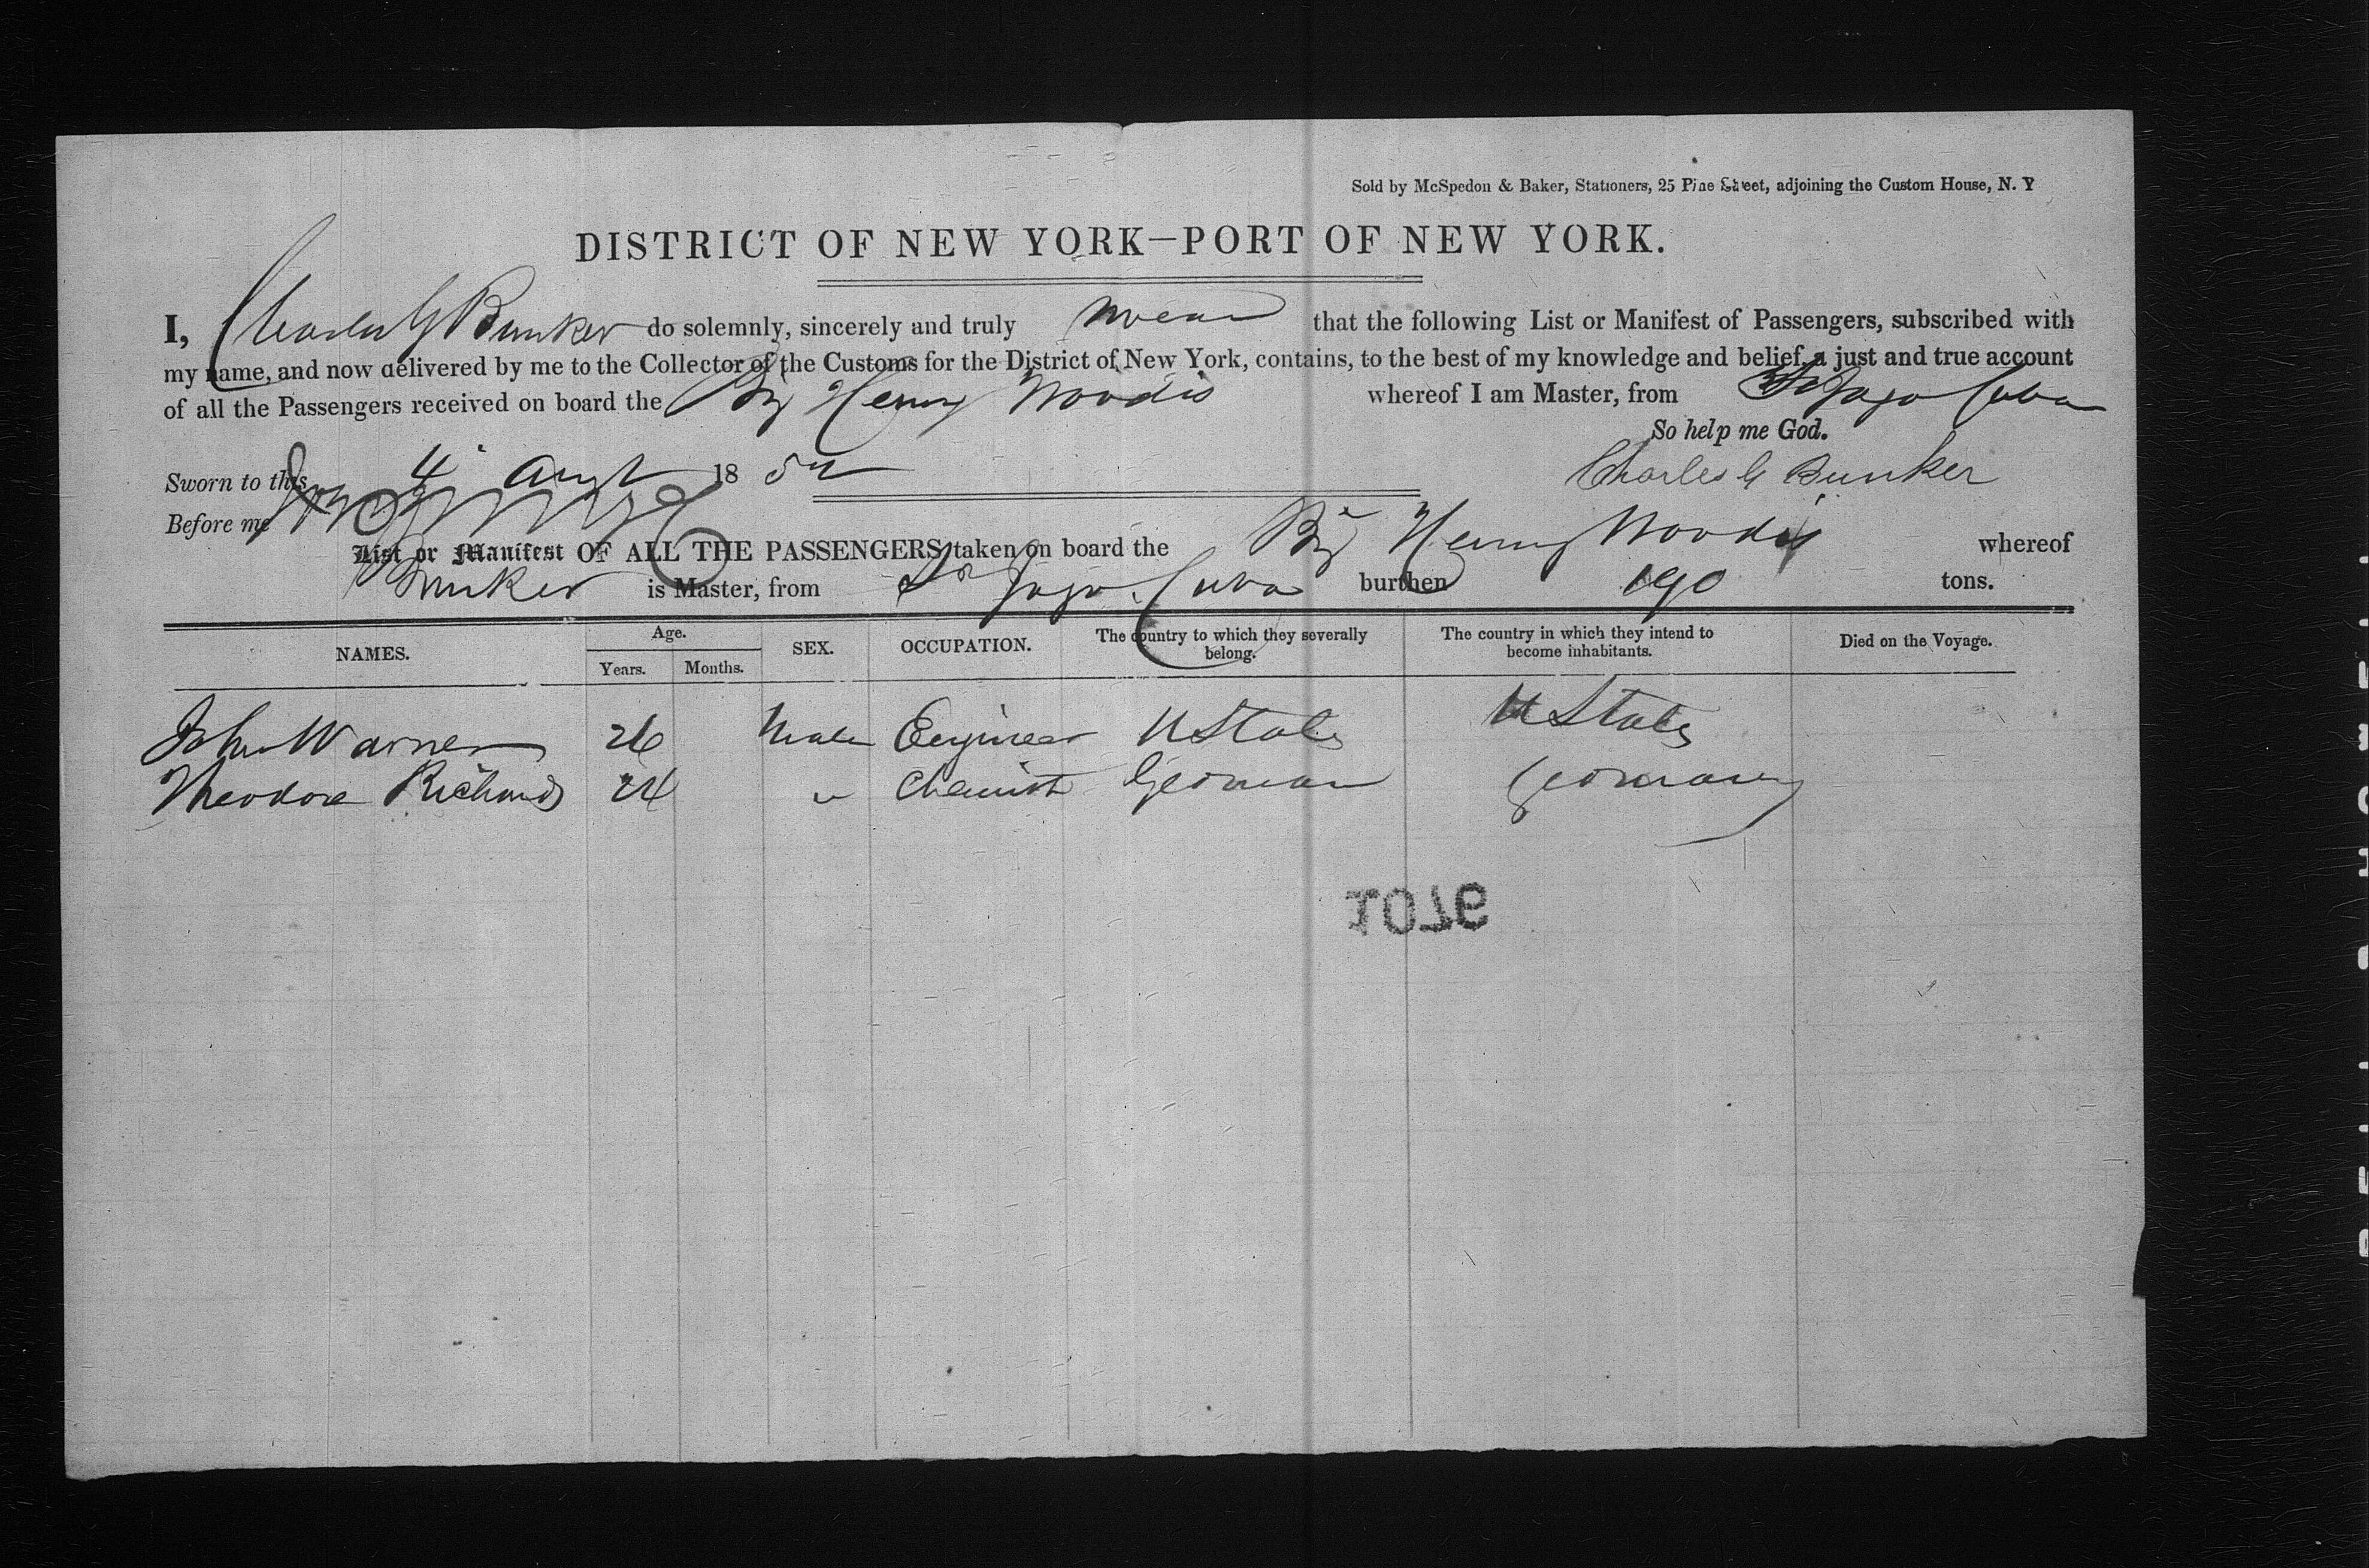 Sold by McSpedon & Baker, Stationers, 25 Pine Street, adjoining the Custom House, N. Y
DISTRICT OF NEW YORK—PORT OF NEW YORK.
I, Charles G Bunker do solemnly, sincerely and truly swear that the following List or Manifest of Passengers, subscribed with
my name, and now delivered by me to the Collector of the Customs for the District of New York, contains, to the best of my knowledge and belief, a just and true account
of all the Passengers received on board the Brig Henry Woodis whereof I am Master, from St Jago Cuba
So help me God.
Sworn to this 4 Augt 18 Charles G Bunker
Before me
List or Manifest OF ALL THE PASSENGERS taken on board the Brig Henry Woodis whereof
Bunker is Master, from St Jago Cuba burthen 190 tons.
NAMES. Age. Years. Months. SEX. OCCUPATION. The country to which they severally belong. The country in which they intend to become inhabitants. Died on the Voyage.
John Warner 26 Male Engineer U States U States
Theodore Richards 24 " Chemist German Germany